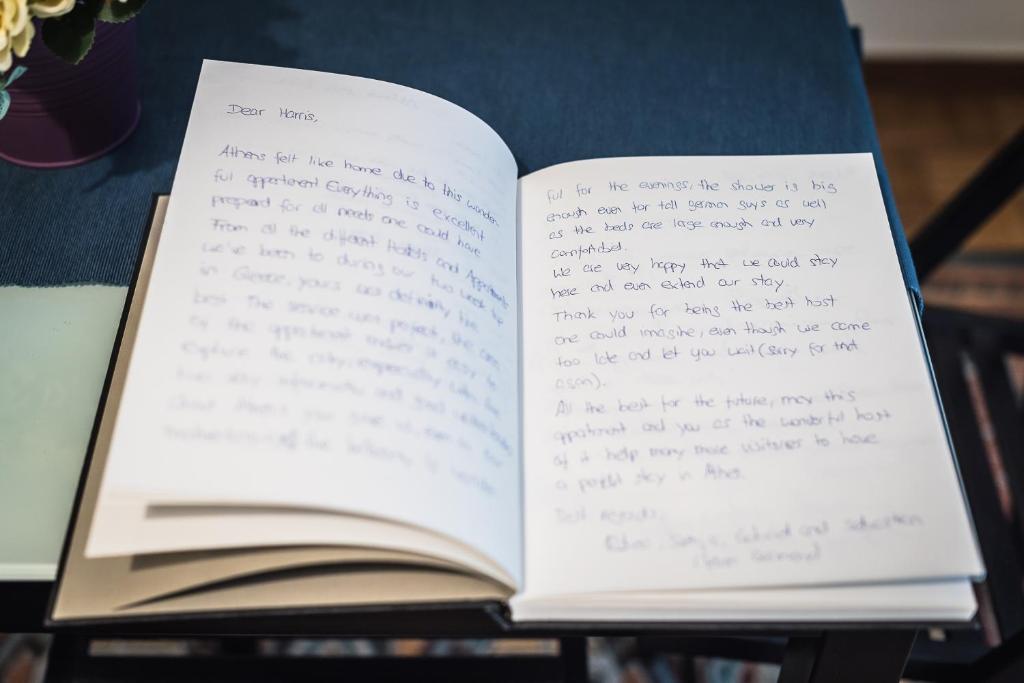 Dear Harris,
Athens felt like home due to this wonder-
ful appartement Everything is excellent
prepared for all needs one could have
From all the different Hostels and Appartments
we've been to during our two week trip
in Greece, yours was definitely the
best The service was perfect, the
of the appartment makes it easy to
explore the city, especially with the
and good
about Athens you give
the
ful for the evenings, the shower is big
enough even for tall german guys as well
as the beds are large enough and very
comfortabel.
We are very happy that we could stay
here and even extend our stay.
Thank you for being the best host
one could imagine, even though we came
too late and let you wait (sorry for that
again).
All the best for the future, may this
appartment and you as the wonderful host
of it help many more visitores to have
a perfekt stay in Athen.
Best regards,
and Sebastian